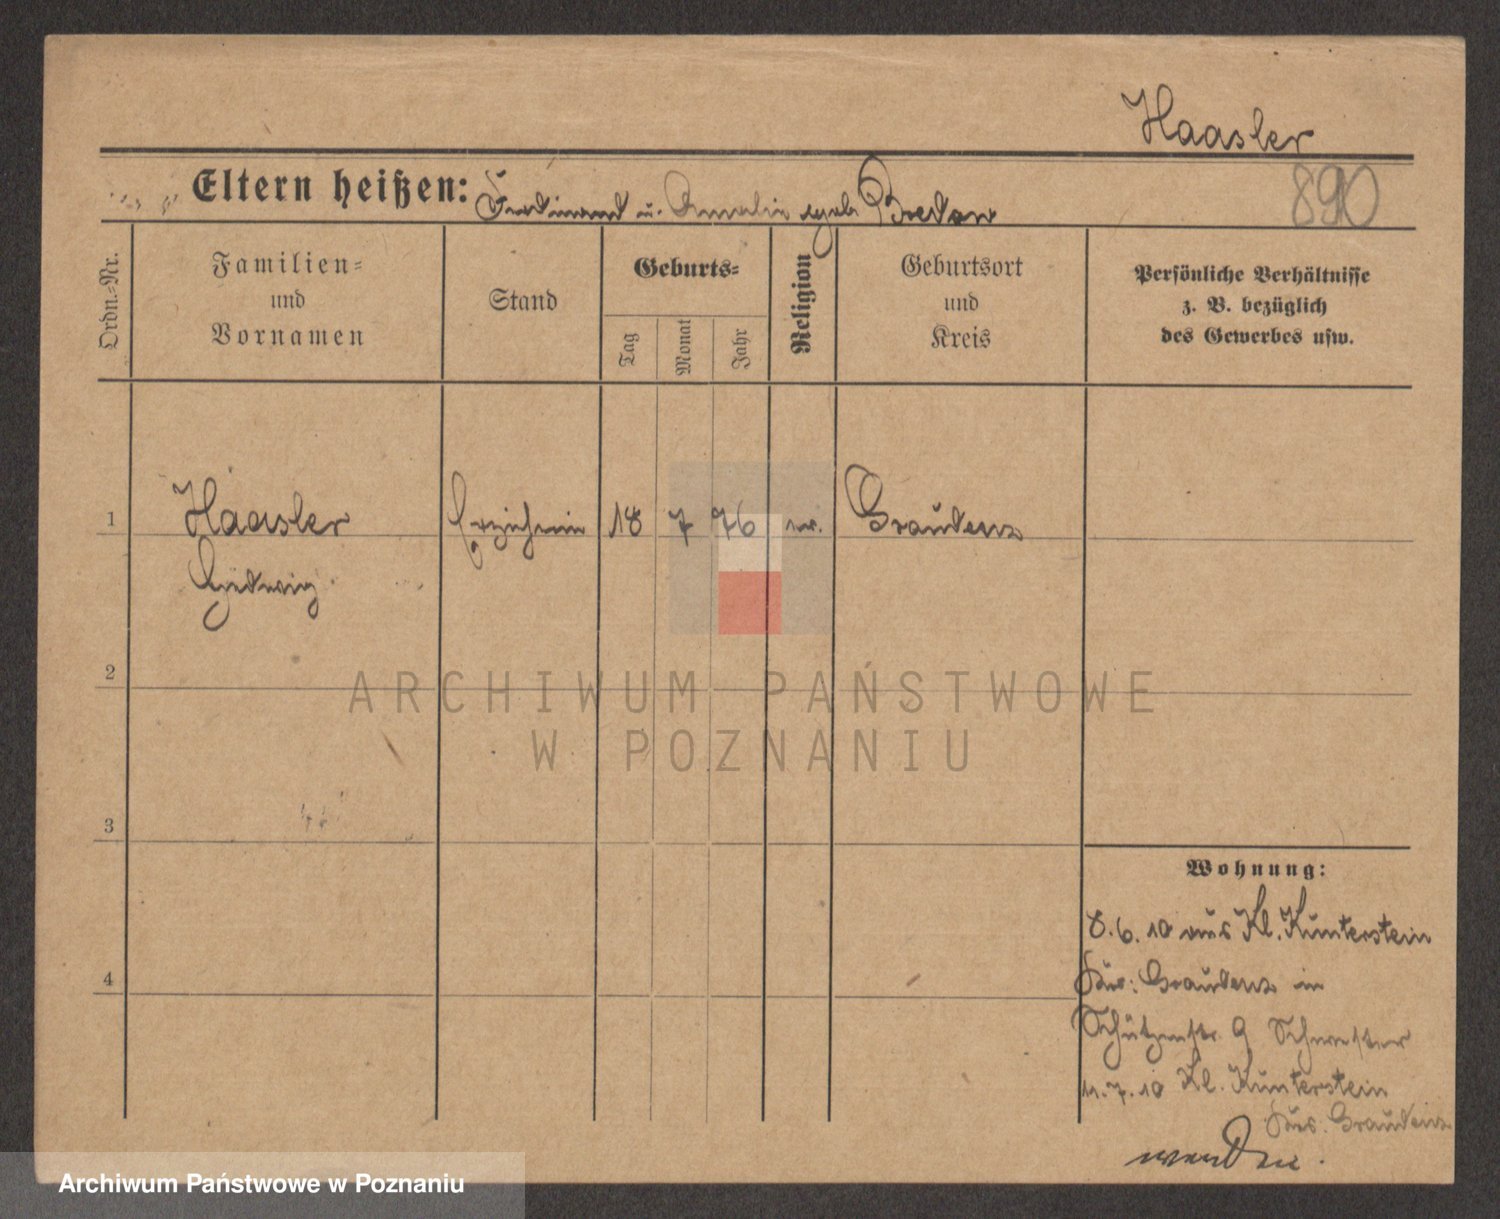 Haasler
Eltern heißen: Ferdinand u. Amalie geb Bredow
890
Ordn.-Nr.
Familien-
und
Vornamen
Stand
Geburts-
Tag
Monat
Jahr
Religion
Geburtsort
und
Kreis
Persönliche Verhältnisse
z. B. bezüglich
des Gewerbes usw.
1
Haasler Erzieherin 18 7 76 ev. Graudenz
Hedwig
2
ARCHIWUM PAŃSTWOWE
W POZNANIU
3
Wohnung:
8.6.10 aus Kl. Kunterstein
4
Krs. Graudenz in
Schützenstr. 9 Schwester
11.7.10 Kl. Kunterstein
Krs. Graudenz
Archiwum Państwowe w Poznaniu